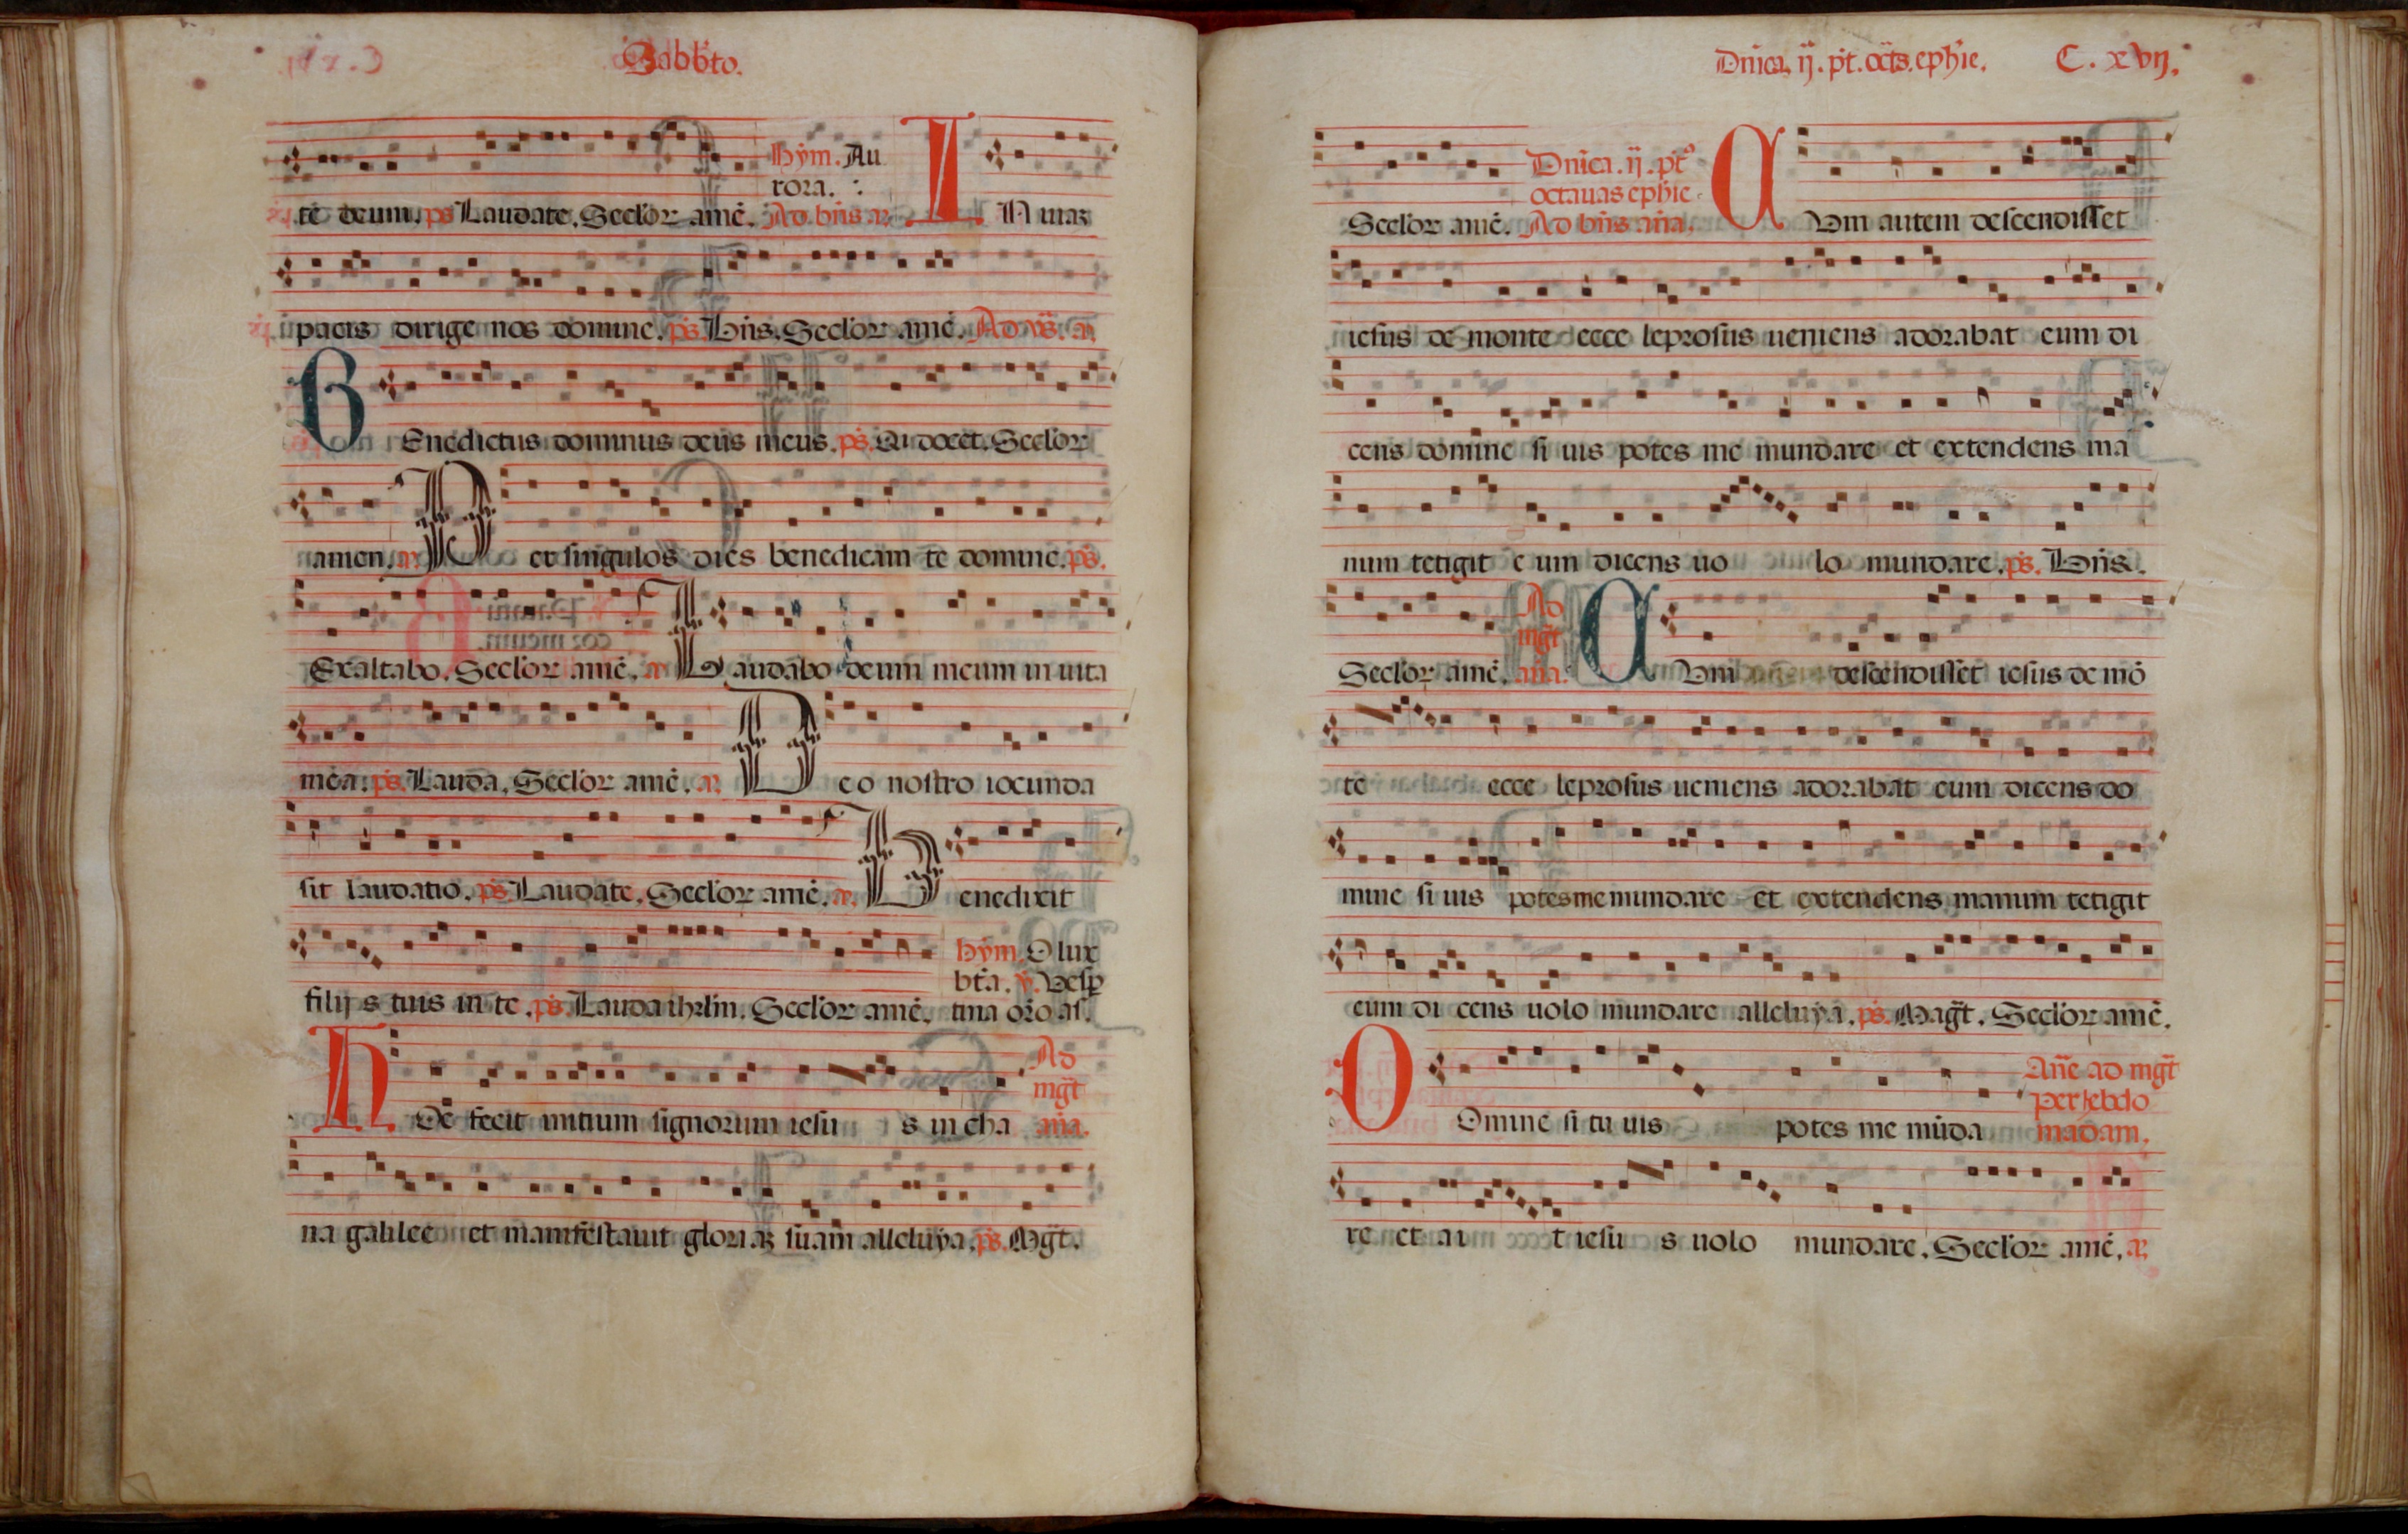 Sabb'to.
Hẏm. Au
rora.
te deum. ps Laudate. Seclor amē. Ad bn̄s a. I N uiaꝫ
pacis dirige nos domine. ps. Bn̄s. Seclor amē. Ad vs̄. a.
B Enedictus dominus deus meus. ps. Qui docet. Seclor
amen. a. P er singulos dies benedicam te domine. ps.
Exaltabo. Seclor amē. a. L audabo deum meum in uita
mea. ps. Lauda. Seclor amē. a. D eo nostro iocunda
sit laudatio. ps. Laudate. Seclor amē. a. B enedixit
Hẏm. O lux
bt̄a. v. Vesp
filijs tuis in te. ps. Lauda ihrlm. Seclor amē. tina or̄o as.
Ad
mgt̄
H Oc fecit initium signorum iesu s in cha an̄a.
na galilee et manifestauit gloriaꝫ suam alleluya. ps. Mgt̄.
Dn̄ica. ij. pt. oct̄s. ephīe. C. xvij.
Dn̄ica. ij. pt᷒
octauas ephīe
Seclor amē. Ad bn̄s an̄a. C Vm autem descendisset
iesus de monte ecce leprosus ueniens adorabat eum di
cens domine si uis potes me mundare et extendens ma
num tetigit eum dicens uo lo mundare. ps. Bn̄s.
Ad
mgt̄
Seclor amē. an̄a. C Vm descendisset iesus de mō
te ecce leprosus ueniens adorabat eum dicens do
mine si uis potes me mundare et extendens manum tetigit
eum dicens uolo mundare alleluya. ps. Magt̄. Seclor amē.
An̄e ad mgt̄
per hebdo
D Omine si tu uis potes me mūda madam.
re et ai t iesu s uolo mundare. Seclor amē. a.